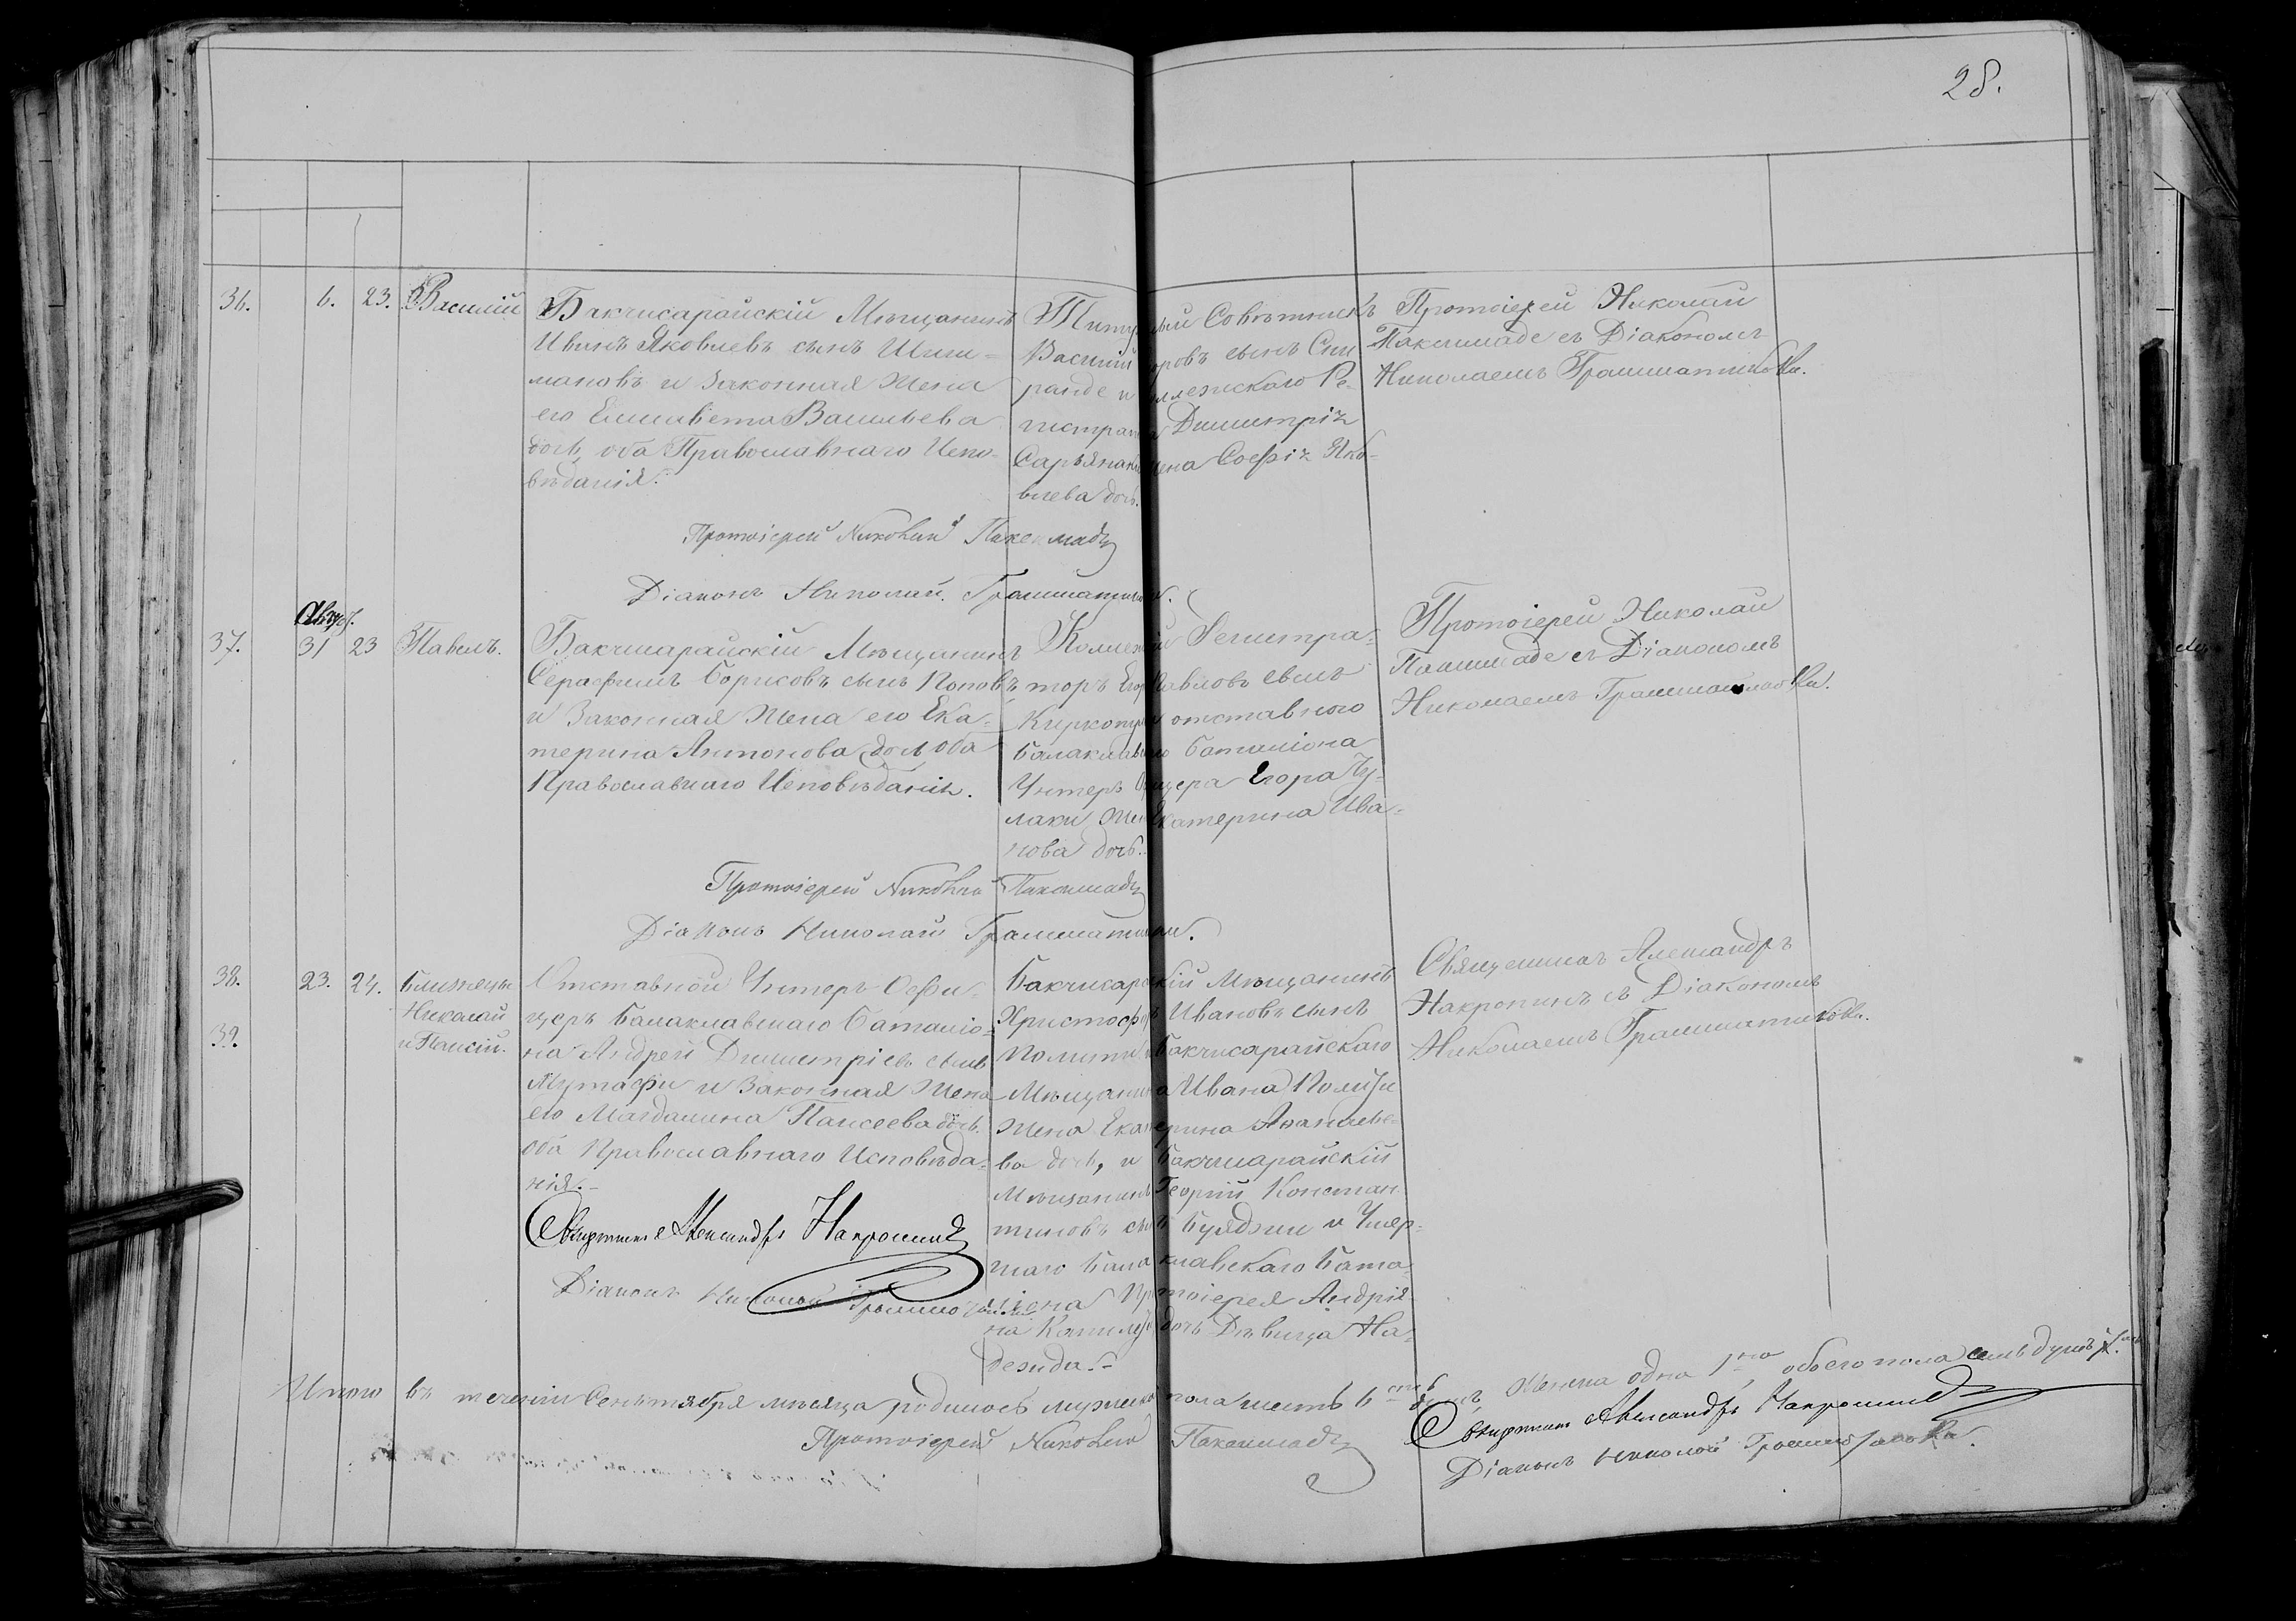 28.
36. 6. 23. Василій
Бакчисарайскій Мѣщанинъ
Иванъ Яковлевъ сынъ Шиш=
мановъ и Законная Жена
его Елисавета Васильева
дочь, оба Православнаго Испо-
вѣданія.
Совѣтникъ
Василій оровъ сынъ Спи
ранде и Ре-
Димитрія
жена Софія Яко-
влева дочь.
Протоіерей Николай
Паксимаде съ Діакономъ
Николаемъ Грамматиковъ.
Протоіерей Николай Паксимади
Діаконъ Николай Грамматиковъ.
Авгус.
37. 31 23 Павелъ.
Бакчисарайскій Мѣщанинъ
Серафимъ Борисовъ сынъ Поповъ
и Законная Жена его Ека-
терина Антонова дочь оба
Православнаго Исповѣданія.
Регистра-
торъ Егоръ Павловъ сынъ
отставного
Баталіона
Унтеръ Егора Чу-
лаки Екатерина Ива-
нова дочь.
Протоіерей Николай
Паксимаде съ Діакономъ
Николаемъ Грамматиковъ.
Протоіерей Николай Паксимади
Діаконъ Николай Грамматиковъ.
38. 23. 24. Близнецы
39. Николай
и Паисій.
Отставной Унтеръ Офи-
церъ Балаклавскаго Баталіо-
на Андрей Димитріевъ сынъ
Мутафи и Законная Жена
его Магдалина Паисеева дочь
оба Православнаго Исповѣда-
нія.-
Бакчисарайскій Мѣщанинъ
Христофоръ Ивановъ сынъ
Бакчисарайскаго
Мѣщанина Ивана
Жена Екатерина Афанасье-
ва дочь, и Бакчисарайскій
Мѣщанинъ Георгій Констан
тиновъ сынъ и Умер-
шаго Балаклавскаго Бата-
ліона Протоіерея Андрія-
на дочь Дѣвица На-
дежда.-
Священникъ Александръ
Накропинъ съ Діакономъ
Николаемъ Грамматиковъ.
Священникъ Александръ Накропинъ
Діаконъ Николай Грамматиковъ
Итого въ теченіи Сентября мѣсяца родилось мужеска пола шесть 6 душъ, Женска одна 1, обоего пола семь душъ
Протоіерей Николай Паксимади
Священникъ Александръ Накропинъ
Діаконъ Николай Грамматиковъ.